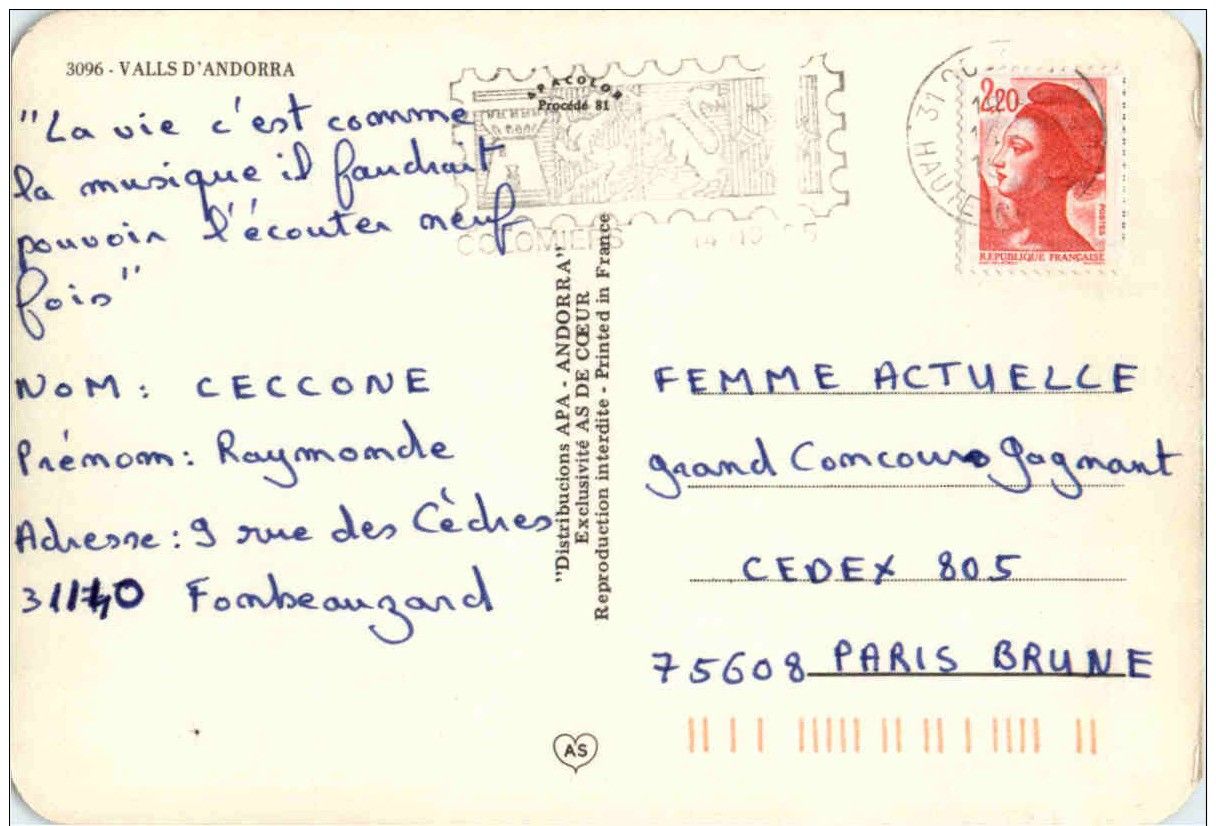 3096 - VALLS D'ANDORRA
"La vie c'est comme
la musique il faudrait
pouvoir l'écouter neuf
fois"
NOM: CECCONE
Prénom: Raymonde
Adresse: 9 rue des Cèdres
31140 Fombeauzard
APACOLOR
Procédé 81
COLOMIERS
"Distribucions APA - ANDORRA"
Exclusivité AS DE CŒUR
Reproduction interdite - Printed in France
AS
31
HAUTE
2,20
POSTES
REPUBLIQUE FRANÇAISE
FEMME ACTUELLE
grand Concours Gagnant
CEDEX 805
75608 PARIS BRUNE